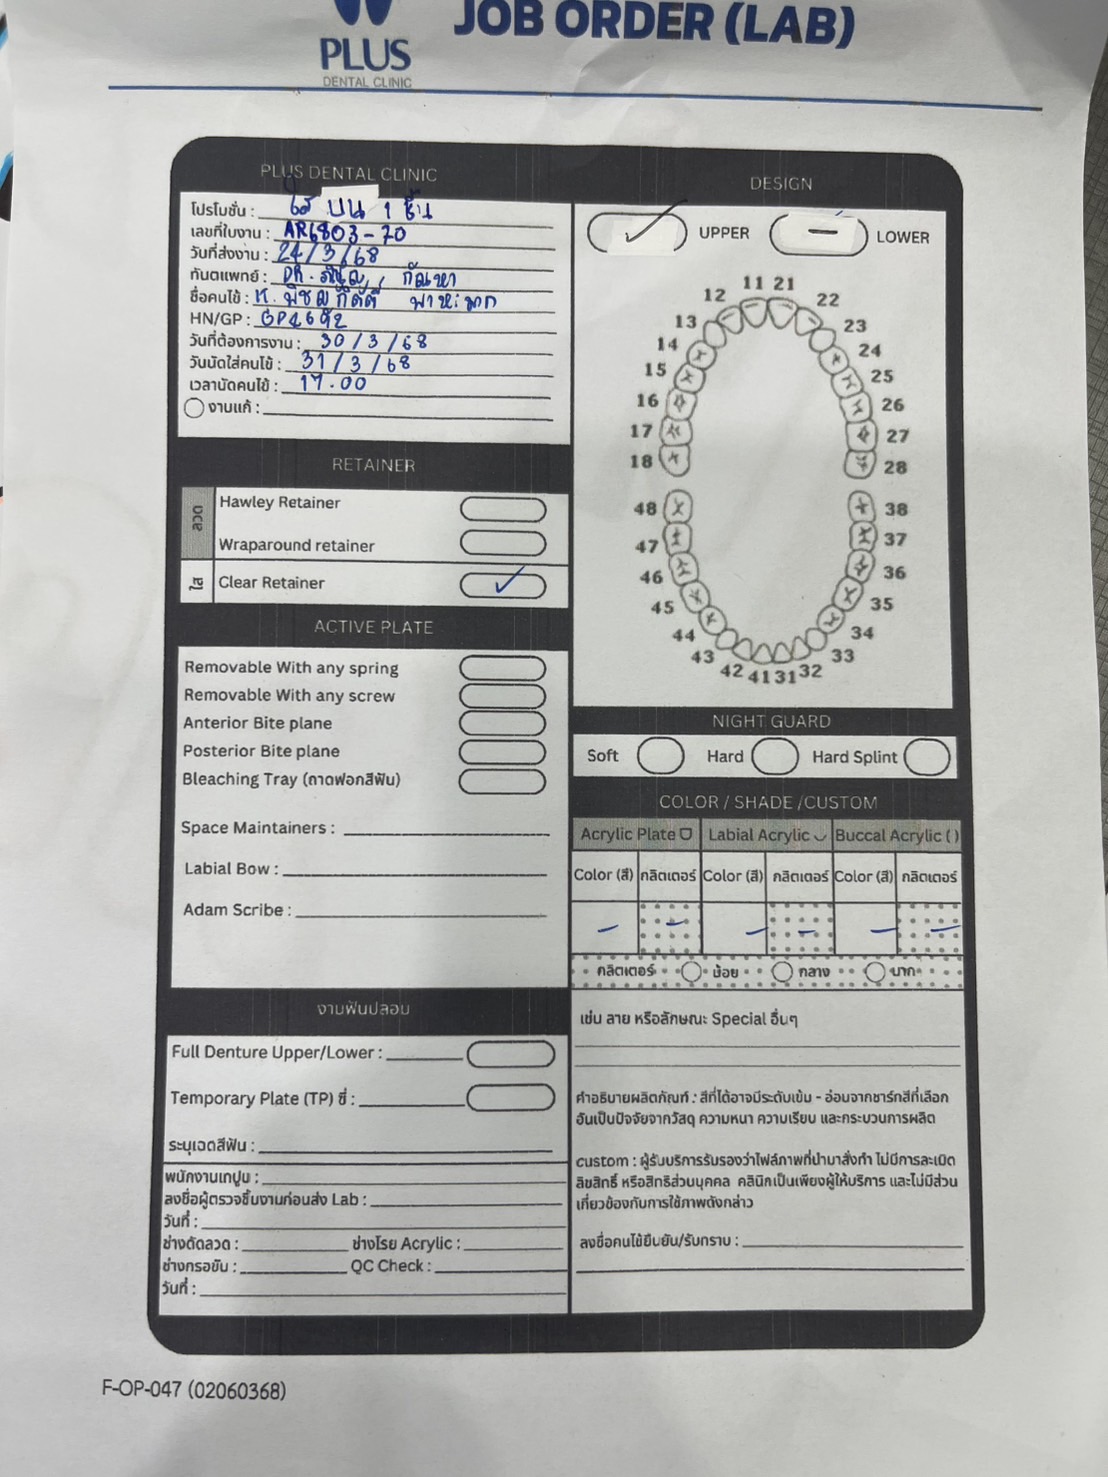 JOB ORDER (LAB)
PLUS
DENTAL CLINIC
PLUS DENTAL CLINIC
โปรโมชั่น : ใส บน 1 ชิ้น
เลขที่ใบงาน : AR6803-70
วันที่ส่งงาน : 24/3/68
ทันตแพทย์ : DR. กัณหา
ชื่อคนไข้ :
HN/GP : GP4692
วันที่ต้องการงาน : 30/3/68
วันนัดใส่คนไข้ : 31/3/68
เวลานัดคนไข้ : 17.00
งานแก้ :
RETAINER
ลวด
Hawley Retainer
Wraparound retainer
ใส
Clear Retainer ✓
ACTIVE PLATE
Removable With any spring
Removable With any screw
Anterior Bite plane
Posterior Bite plane
Bleaching Tray (ถาดฟอกสีฟัน)
Space Maintainers :
Labial Bow :
Adam Scribe :
งานฟันปลอม
Full Denture Upper/Lower :
Temporary Plate (TP) ซี่ :
ระบุเฉดสีฟัน :
พนักงานเทปูน :
ลงชื่อผู้ตรวจชิ้นงานก่อนส่ง Lab :
วันที่ :
ช่างดัดลวด : ช่างโรย Acrylic :
ช่างกรอขัน : QC Check :
วันที่ :
DESIGN
✓ UPPER – LOWER
11 21
12 22
13 23
14 24
15 25
16 26
17 27
18 28
48 38
47 37
46 36
45 35
44 34
43 33
42 41 31 32
NIGHT GUARD
Soft Hard Hard Splint
COLOR / SHADE /CUSTOM
Acrylic Plate Labial Acrylic Buccal Acrylic ( )
Color (สี) กลิตเตอร์ Color (สี) กลิตเตอร์ Color (สี) กลิตเตอร์
– – – – – –
กลิตเตอร์ น้อย กลาง มาก
เช่น ลาย หรือลักษณะ Special อื่นๆ
คำอธิบายผลิตภัณฑ์ : สีที่ได้อาจมีระดับเข้ม - อ่อนจากชาร์ทสีที่เลือก
อันเป็นปัจจัยจากวัสดุ ความหนา ความเรียบ และกระบวนการผลิต
custom : ผู้รับบริการรับรองว่าไฟล์ภาพที่นำมาสั่งทำ ไม่มีการละเมิด
ลิขสิทธิ์ หรือสิทธิส่วนบุคคล คลินิกเป็นเพียงผู้ให้บริการ และไม่มีส่วน
เกี่ยวข้องกับการใช้ภาพดังกล่าว
ลงชื่อคนไข้ยืนยัน/รับทราบ :
F-OP-047 (02060368)